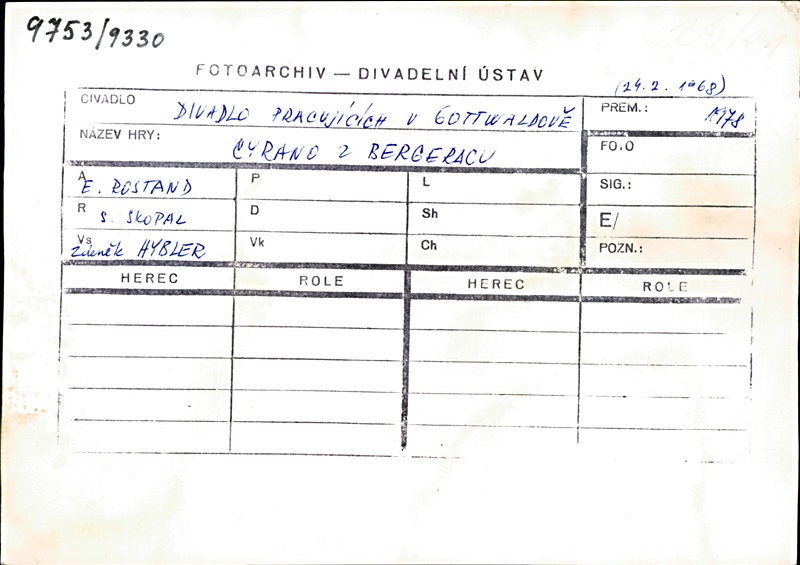 9753/9330
FOTOARCHIV — DIVADELNÍ ÚSTAV
(24.2. 1968)
DIVADLO DIVADLO PRACUJÍCÍCH V GOTTWALDOVĚ PREM.: 1978
NÁZEV HRY: CYRANO Z BERGERACU FOTO
A E. ROSTAND P L SIG.:
R S. SKOPAL D Sh E/
Vs Zdeněk HYBLER Vk Ch POZN.:
HEREC ROLE HEREC ROLE